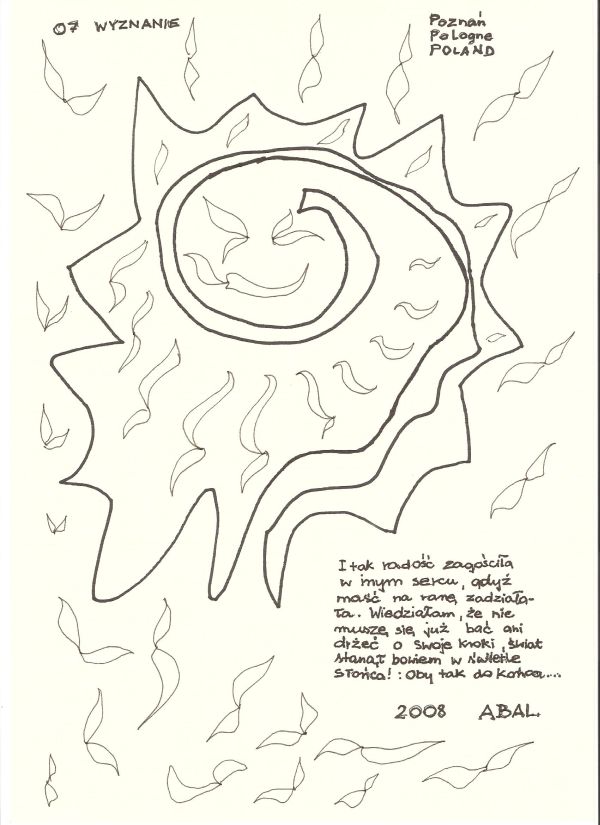 07 WYZNANIE
Poznań
Pologne
POLAND
I tak radość zagościła
w mym sercu, gdyż
maść na ranę zadziała-
ła. Wiedziałam, że nie
muszę się już bać ani
drżeć o swoje kroki, świat
stanął bowiem w świetle
słońca! : Oby tak do końca...
2008 ABAL.